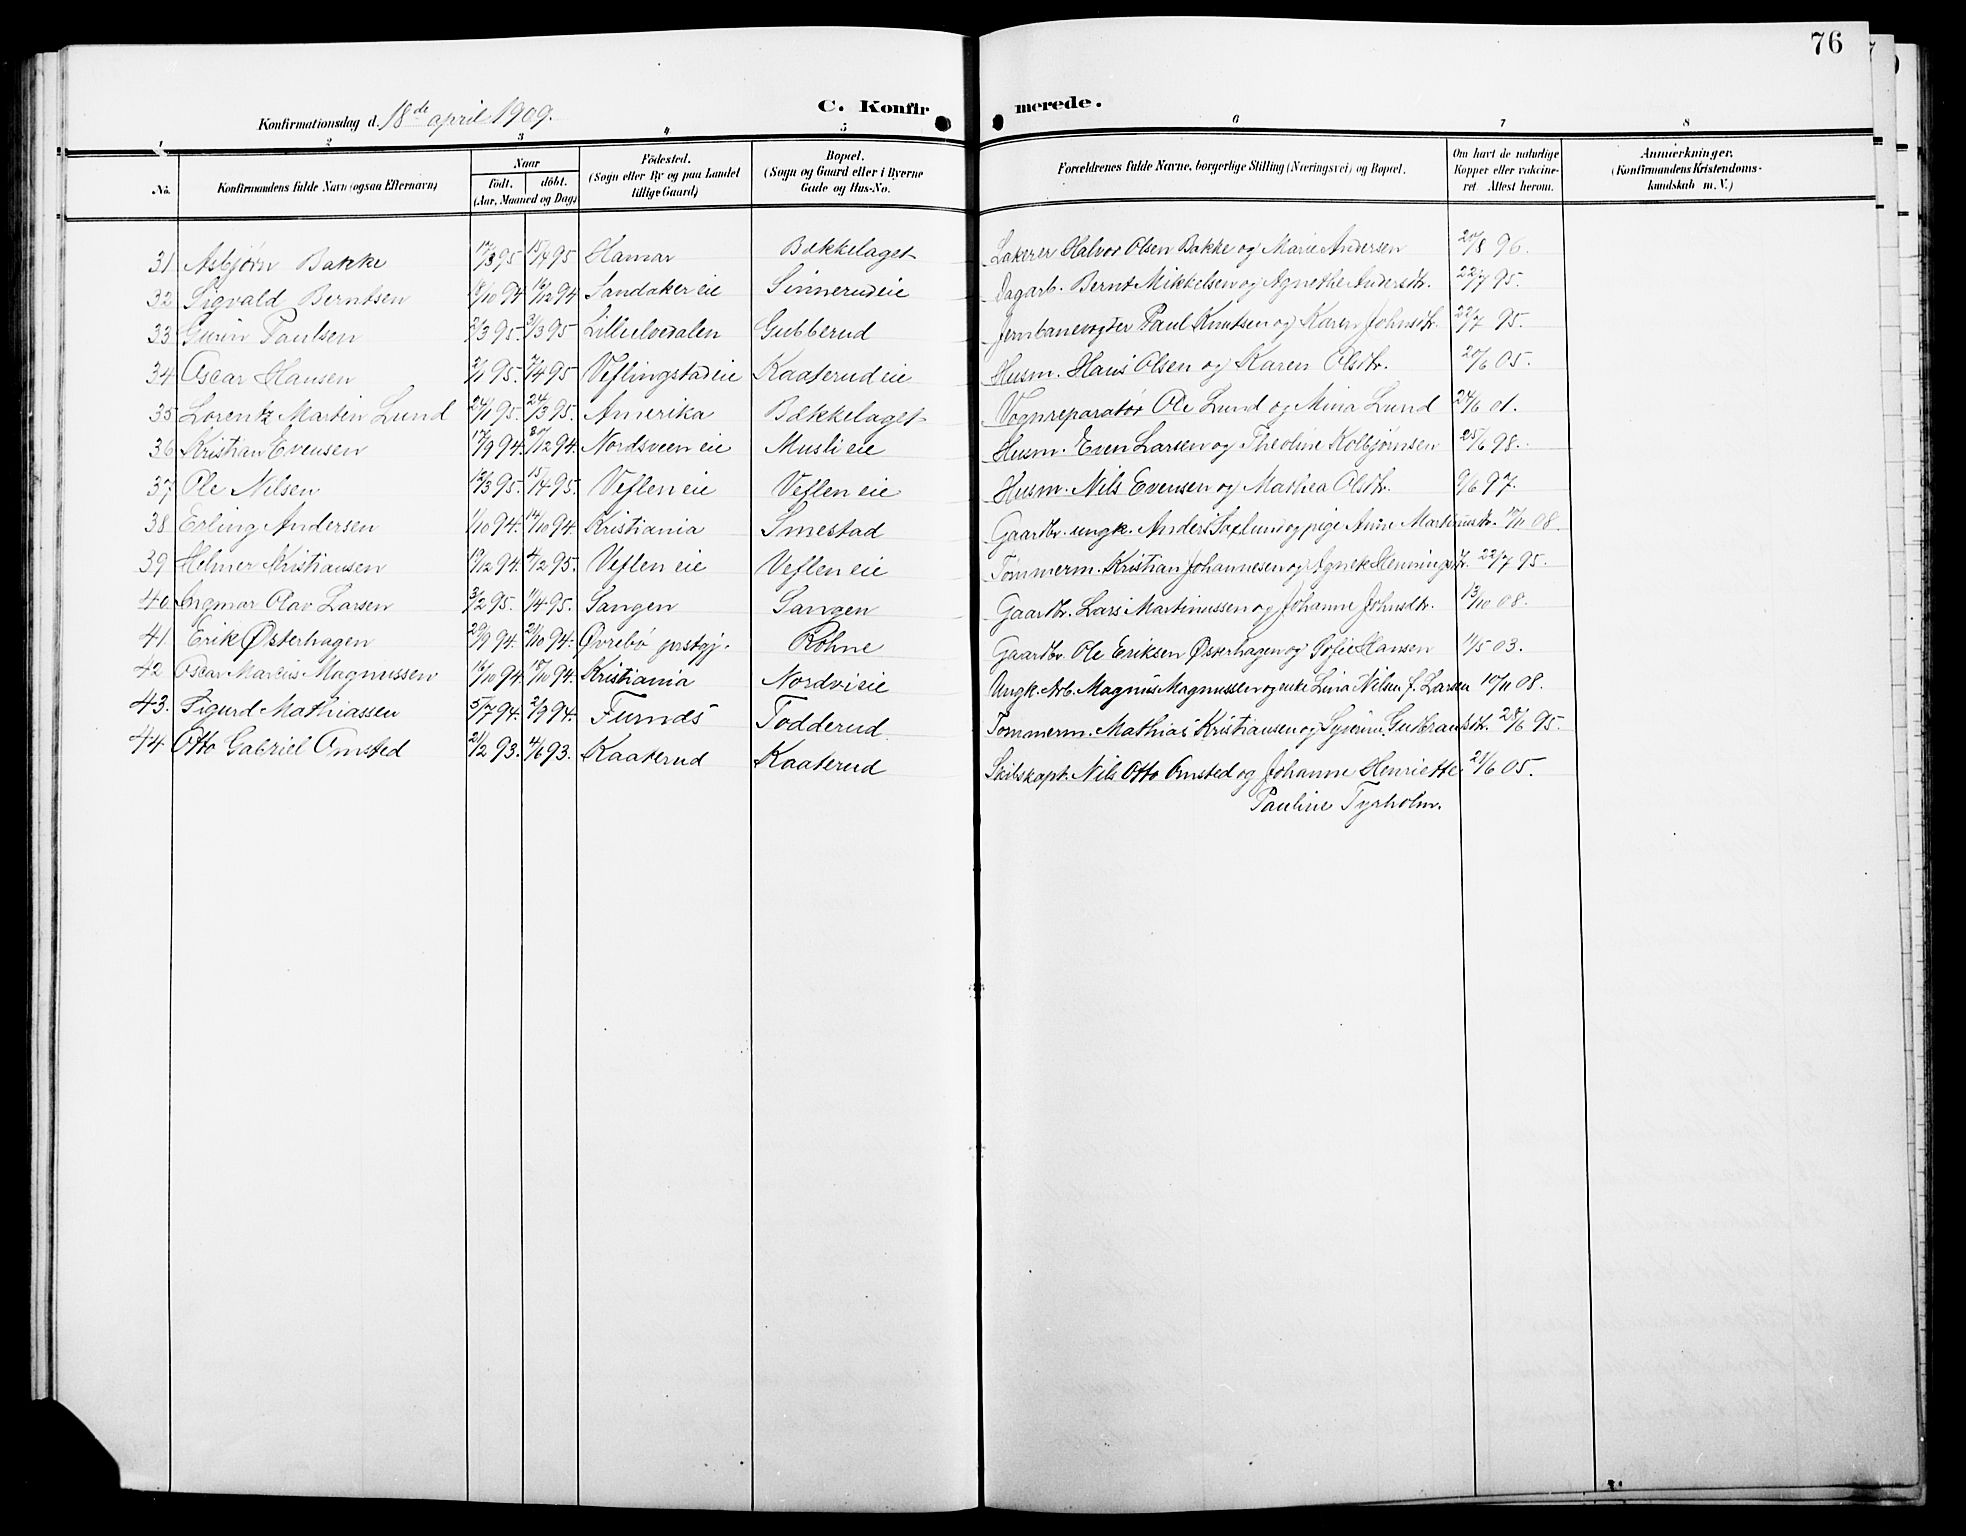 76
Konfirmationsdag d. 18de april 1909.
C. Konfirmerede.
1 2 3 4 5 6 7 8
No. Konfirmandens fulde Navn (ogsaa Efternavn) Naar födt. döbt. (Aar, Maaned og Dag) Födested. (Sogn eller By og paa Landet tillige Gaard) Bopæl. (Sogn og Gaard eller i Byerne Gade og Hus-No. Forældrenes fulde Navne, borgerlige Stilling (Næringsvei) og Bopæl. Om havt de naturlige Kopper eller vakcineret Attest herom. Anmærkninger. (Konfirmandens Kristendomskundskab m. V.)
31 Asbjørn Bakke 17/3 95 15/4 95 Hamar Bækkelaget Lakerer Halvor Olsen Bakke og Marie Andersen 20/8 96.
32 Sigvald Berntsen /10 94 16/12 94 Sandaker eie Sinnerud eie Dagarb. Bernt Mikkelsen og Agnethe Andersdtr. 22/7 95.
33 Paulsen 2/3 95. 31/3 95 Lilleelvedalen Gubberud Jernbanevogter Paul Knutsen og Karen Johnsdtr. 22/7 95.
34 Oscar Hansen 2/1 95. 7/4 95 Veflingstad eie Kaaterud eie Husm. Hans Olsen og Karen Olsdtr. 20/6 05.
35 Lorentz Martin Lund 24/1 95. 24/3 95. Amerika Bækkelaget Vognreparatør Ole Lund og Mina Lund 24/6 01.
36 Kristian Evensen 17/9 94. /12 94. Nordsveen eie Musli eie Husm. Even Larsen og Theoline Kolbjørnsen 25/6 98.
37 Ole Nilsen 12/3 95. 15/4 95. Veflen eie Veflen eie Husm. Nils Evensen og Mathea Olsdtr. 9/6 97.
38 Erling Andersen 1/10 94. 14/10 94. Kristiania Smestad Gaardbr. ungk. Anders og pige Anne Martinusdtr. 17/11 08.
39 Helmer Kristiansen 19/12 94. 4/2 95. Veflen eie Veflen eie Tømmerm. Kristian Johannesen og Agnete Henningsdtr. 22/7 95.
40 Ingmar Olav Larsen 3/2 95. 11/4 95. Sangen Sangen Gaardbr. Lars Martinussen og Johanne Johnsdtr. 13/10 08.
41 Erik Østerhagen 29/9 94. 21/10 94. Øvrebø prstgj. Rohne Gaardbr. Ole Eriksen Østerhagen og Sofie Hansen 11/5 03.
42 Oscar Marius Magnussen 16/10 94. 17/10 94. Kristiania Nordvi eie Ungk. Arb. Magnus Magnussen og enke Lina Nilsen f. Larsen 10/11 08.
43. Sigurd Mathiassen 5/7 94. 2/9 94. Furnds Todderud Tømmerm. Mathias Kristiansen og Syverine Gudbrandsdtr. 28/6 95.
44 Otto Gabriel Omsted 21/2 93. 4/6 93. Kaaterud Kaaterud Skibskapt. Nils Otto Omsted og Johanne Henriette 21/6 05.
Pauline Tyrholm.